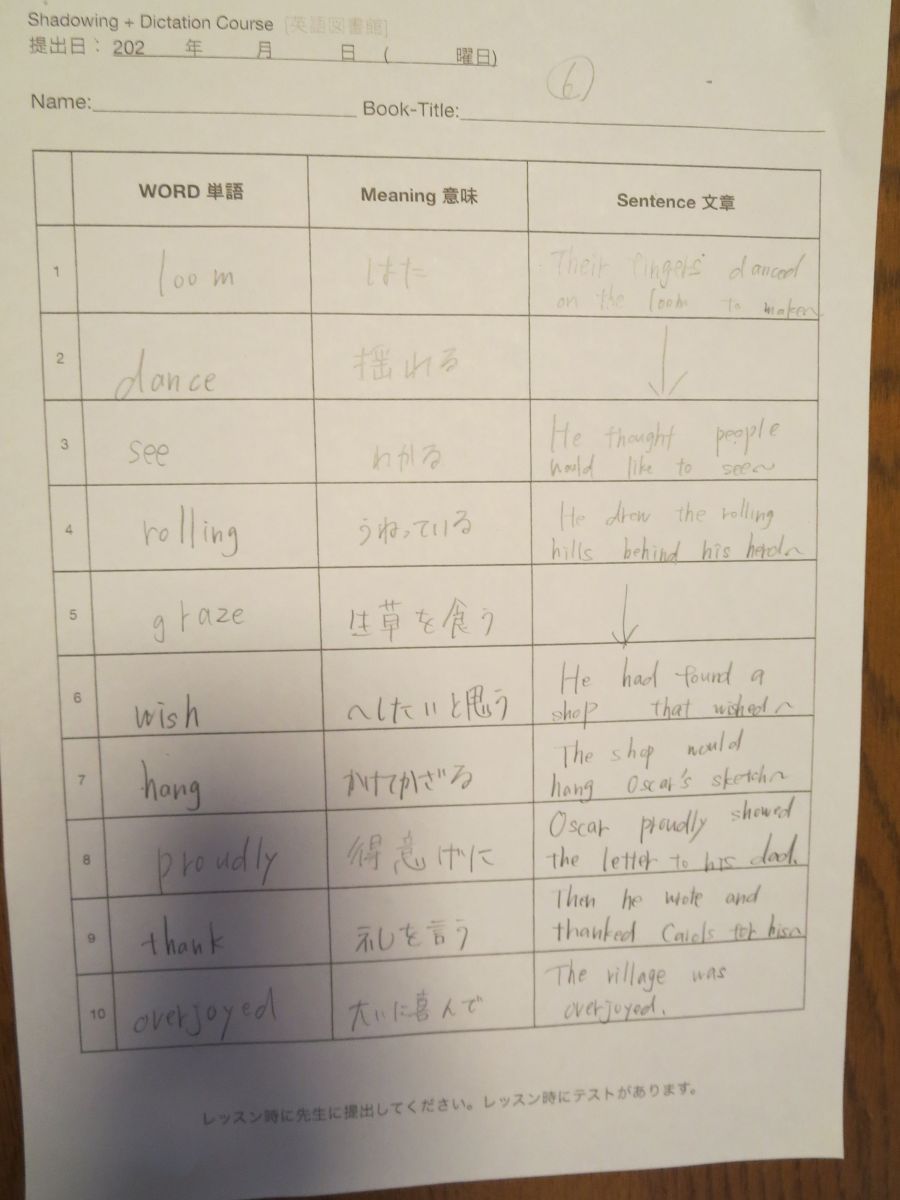 Shadowing + Dictation Course [英語図書館]
提出日： 202 年 月 日 ( 曜日)
6
Name: Book-Title:
WORD 単語 Meaning 意味 Sentence 文章
1 loom はた Their fingers danced
on the loom to make~
2 dance 揺れる ↓
3 see わかる He thought people
would like to see~
4 rolling うねっている He drew the rolling
hills behind his herd~
5 graze 生草を食う ↓
6 wish ~したいと思う He had found a
shop that wished~
7 hang かけてかざる The shop would
hang Oscar's sketch~
8 proudly 得意げに Oscar proudly showed
the letter to his dad.
9 thank 礼を言う Then he wrote and
thanked Carols for his~
10 overjoyed 大いに喜んで The village was
overjoyed.
レッスン時に先生に提出してください。レッスン時にテストがあります。